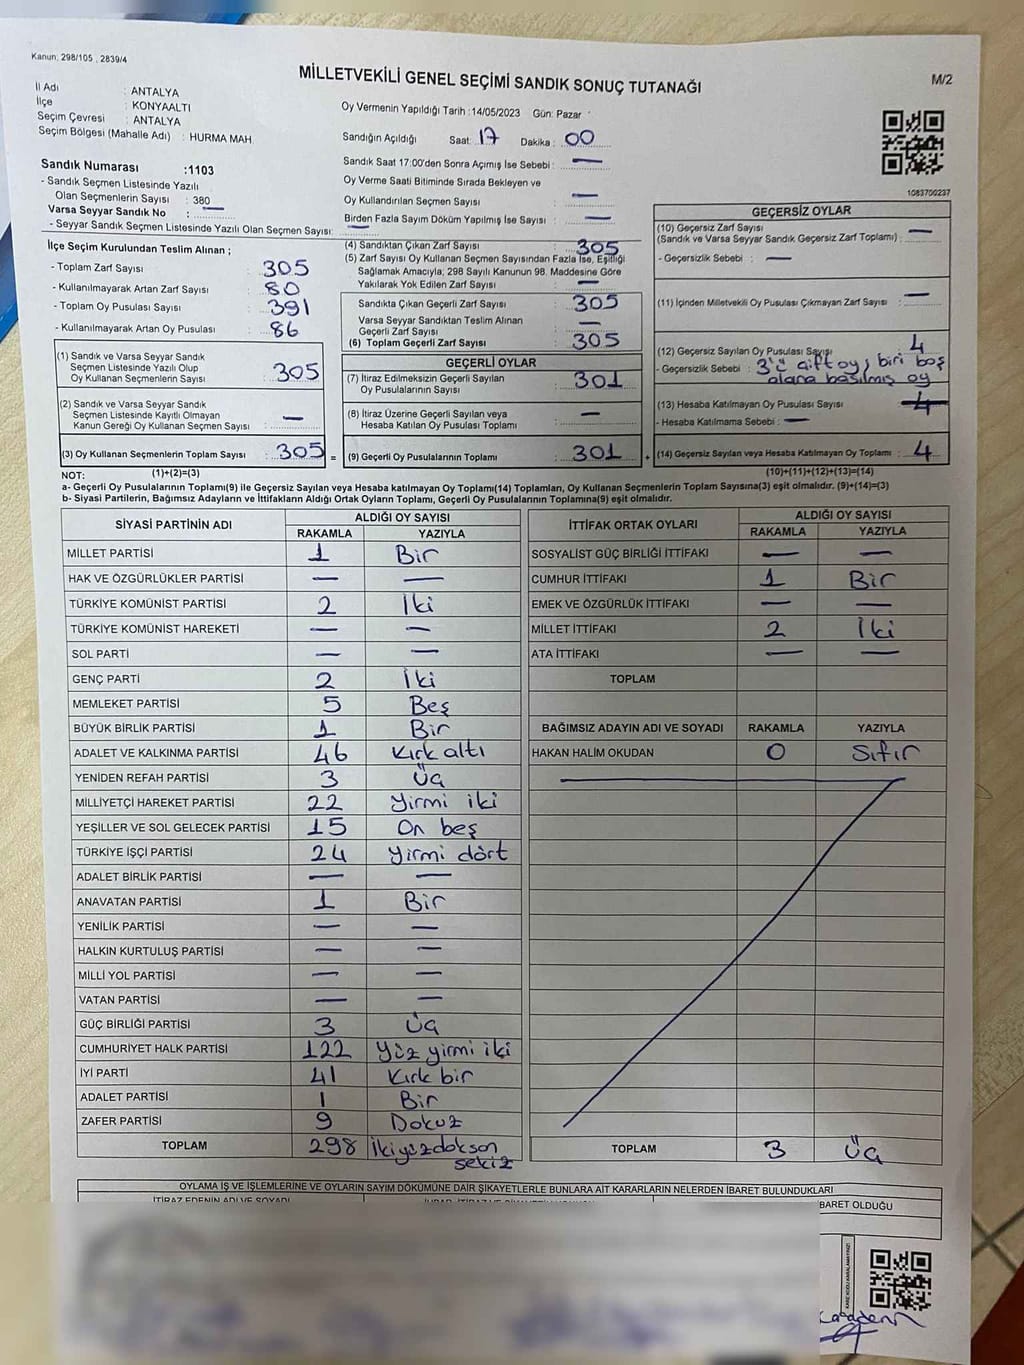 Kanun; 298/105 , 2839/4
MİLLETVEKİLİ GENEL SEÇİMİ SANDIK SONUÇ TUTANAĞI
M/2
İl Adı : ANTALYA
İlçe : KONYAALTI
Seçim Çevresi : ANTALYA
Seçim Bölgesi (Mahalle Adı) : HURMA MAH
Oy Vermenin Yapıldığı Tarih :14/05/2023 Gün: Pazar
Sandığın Açıldığı Saat: 17 Dakika : 00
Sandık Saat 17:00'den Sonra Açımış İse Sebebi : —
Oy Verme Saati Bitiminde Sırada Bekleyen ve
Oy Kullandırılan Seçmen Sayısı : —
Birden Fazla Sayım Döküm Yapılmış İse Sayısı : —
1083700237
Sandık Numarası :1103
- Sandık Seçmen Listesinde Yazılı
Olan Seçmenlerin Sayısı : 380
Varsa Seyyar Sandık No : —
- Seyyar Sandık Seçmen Listesinde Yazılı Olan Seçmen Sayısı: —
İlçe Seçim Kurulundan Teslim Alınan ;
- Toplam Zarf Sayısı : 305
- Kullanılmayarak Artan Zarf Sayısı : 80
- Toplam Oy Pusulası Sayısı : 391
- Kullanılmayarak Artan Oy Pusulası : 86
(1) Sandık ve Varsa Seyyar Sandık
Seçmen Listesinde Yazılı Olup
Oy Kullanan Seçmenlerin Sayısı : 305
(2) Sandık ve Varsa Seyyar Sandık
Seçmen Listesinde Kayıtlı Olmayan
Kanun Gereği Oy Kullanan Seçmen Sayısı : —
(3) Oy Kullanan Seçmenlerin Toplam Sayısı : 305 =
(4) Sandıktan Çıkan Zarf Sayısı : 305
(5) Zarf Sayısı Oy Kullanan Seçmen Sayısından Fazla İse, Eşitliği
Sağlamak Amacıyla; 298 Sayılı Kanunun 98. Maddesine Göre
Yakılarak Yok Edilen Zarf Sayısı : —
Sandıkta Çıkan Geçerli Zarf Sayısı : 305
Varsa Seyyar Sandıktan Teslim Alınan
Geçerli Zarf Sayısı : —
(6) Toplam Geçerli Zarf Sayısı : 305
GEÇERLİ OYLAR
(7) İtiraz Edilmeksizin Geçerli Sayılan
Oy Pusulalarının Sayısı : 301
(8) İtiraz Üzerine Geçerli Sayılan veya
Hesaba Katılan Oy Pusulası Toplamı : —
(9) Geçerli Oy Pusulalarının Toplamı : 301 +
GEÇERSİZ OYLAR
(10) Geçersiz Zarf Sayısı
(Sandık ve Varsa Seyyar Sandık Geçersiz Zarf Toplamı) : —
- Geçersizlik Sebebi : —
(11) İçinden Milletvekili Oy Pusulası Çıkmayan Zarf Sayısı : —
(12) Geçersiz Sayılan Oy Pusulası Sayısı : 4
- Geçersizlik Sebebi : 3'ü çift oy, biri boş
alana basılmış oy
(13) Hesaba Katılmayan Oy Pusulası Sayısı
- Hesaba Katılmama Sebebi : —
(14) Geçersiz Sayılan veya Hesaba Katılmayan Oy Toplamı : 4
NOT: (1)+(2)=(3) (10)+(11)+(12)+(13)=(14)
a- Geçerli Oy Pusulalarının Toplamı(9) ile Geçersiz Sayılan veya Hesaba katılmayan Oy Toplamı(14) Toplamları, Oy Kullanan Seçmenlerin Toplam Sayısına(3) eşit olmalıdır. (9)+(14)=(3)
b- Siyasi Partilerin, Bağımsız Adayların ve İttifakların Aldığı Ortak Oyların Toplamı, Geçerli Oy Pusulalarının Toplamına(9) eşit olmalıdır.
SİYASİ PARTİNİN ADI ALDIĞI OY SAYISI
RAKAMLA YAZIYLA
MİLLET PARTİSİ 1 Bir
HAK VE ÖZGÜRLÜKLER PARTİSİ — —
TÜRKİYE KOMÜNİST PARTİSİ 2 İki
TÜRKİYE KOMÜNİST HAREKETİ — —
SOL PARTİ — —
GENÇ PARTİ 2 İki
MEMLEKET PARTİSİ 5 Beş
BÜYÜK BİRLİK PARTİSİ 1 Bir
ADALET VE KALKINMA PARTİSİ 46 Kırk altı
YENİDEN REFAH PARTİSİ 3 Üç
MİLLİYETÇİ HAREKET PARTİSİ 22 Yirmi iki
YEŞİLLER VE SOL GELECEK PARTİSİ 15 On beş
TÜRKİYE İŞÇİ PARTİSİ 24 Yirmi dört
ADALET BİRLİK PARTİSİ — —
ANAVATAN PARTİSİ 1 Bir
YENİLİK PARTİSİ — —
HALKIN KURTULUŞ PARTİSİ — —
MİLLİ YOL PARTİSİ — —
VATAN PARTİSİ — —
GÜÇ BİRLİĞİ PARTİSİ 3 Üç
CUMHURİYET HALK PARTİSİ 122 Yüz yirmi iki
İYİ PARTİ 41 Kırk bir
ADALET PARTİSİ 1 Bir
ZAFER PARTİSİ 9 Dokuz
TOPLAM 298 İkiyüzdoksan
sekiz
İTTİFAK ORTAK OYLARI ALDIĞI OY SAYISI
RAKAMLA YAZIYLA
SOSYALİST GÜÇ BİRLİĞİ İTTİFAKI — —
CUMHUR İTTİFAKI 1 Bir
EMEK VE ÖZGÜRLÜK İTTİFAKI — —
MİLLET İTTİFAKI 2 İki
ATA İTTİFAKI — —
TOPLAM
BAĞIMSIZ ADAYIN ADI VE SOYADI RAKAMLA YAZIYLA
HAKAN HALİM OKUDAN 0 Sıfır
TOPLAM 3 Üç
OYLAMA İŞ VE İŞLEMLERİNE VE OYLARIN SAYIM DÖKÜMÜNE DAİR ŞİKAYETLERLE BUNLARA AİT KARARLARIN NELERDEN İBARET BULUNDUKLARI
İTİRAZ EDENİN ADI VE SOYADI
BARET OLDUĞU